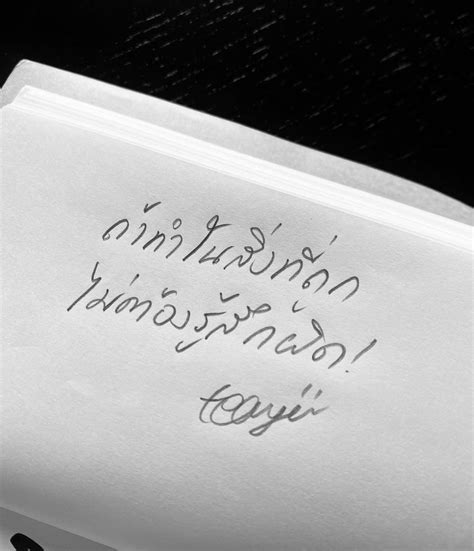 ถ้าทำในสิ่งที่ถูก
ไม่ต้องรู้สึกผิด!